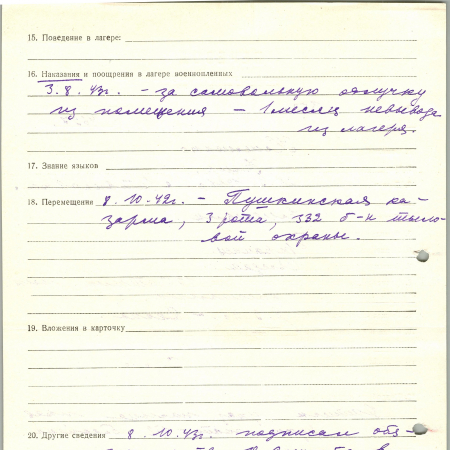 15. Поведение в лагере:
16. Наказания и поощрения в лагере военнопленных
3. 8. 43г. - за самовольную отлучку
из помещения - 1 месяц невывода
из лагеря.
17. Знание языков
18. Перемещение 8. 10. 42г. - Пушкинская ка-
зарма, 3 рота, 332 б-н тыло-
вой охраны.
19. Вложения в карточку
20. Другие сведения 8. 10. 43г. подписал обя-